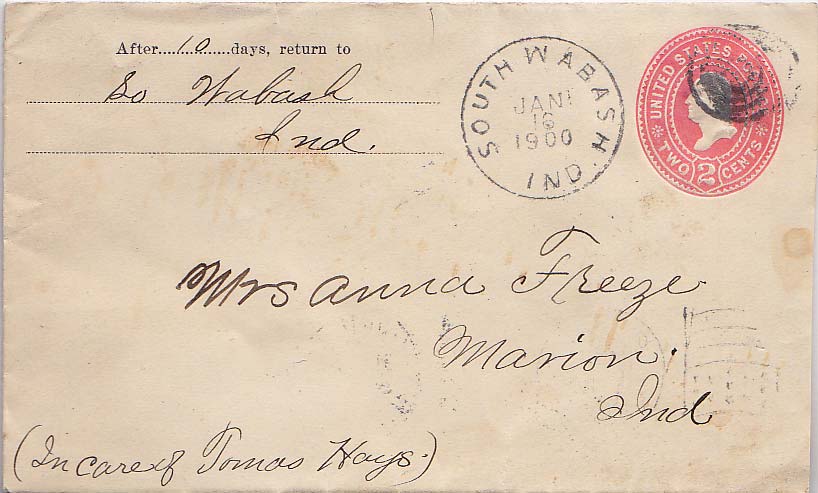 After....10....days, return to
So Wabash
Ind.
SOUTH WABASH IND.
JAN
16
1900
UNITED STATES
TWO 2 CENTS
Mrs Anna Freeze
Marion.
Ind
(In care of Tomas Hays.)